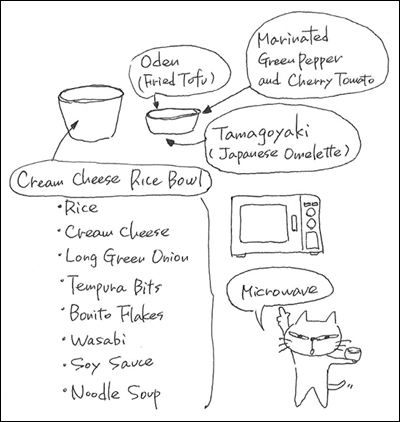 Oden
(Fried Tofu)
Marinated
Green Pepper
and Cherry Tomato
Tamagoyaki
(Japanese Omelette)
Cream Cheese Rice Bowl
・Rice
・Cream Cheese
・Long Green Onion
・Tempura Bits
・Bonito Flakes
・Wasabi
・Soy Sauce
・Noodle Soup
Microwave